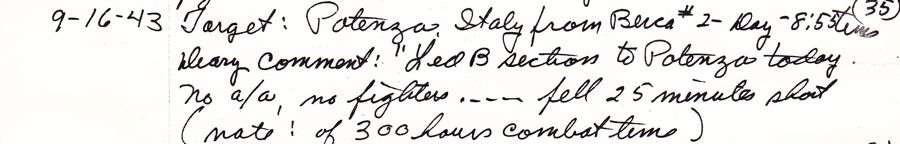 9-16-43 Target: Potenza, Italy from Berca #2- Day -8:55 time (35)
Diary comment: "Led B section to Potenza today.
No a/a, no fighters .---- fell 25 minutes short
(note: of 300 hours combat time)